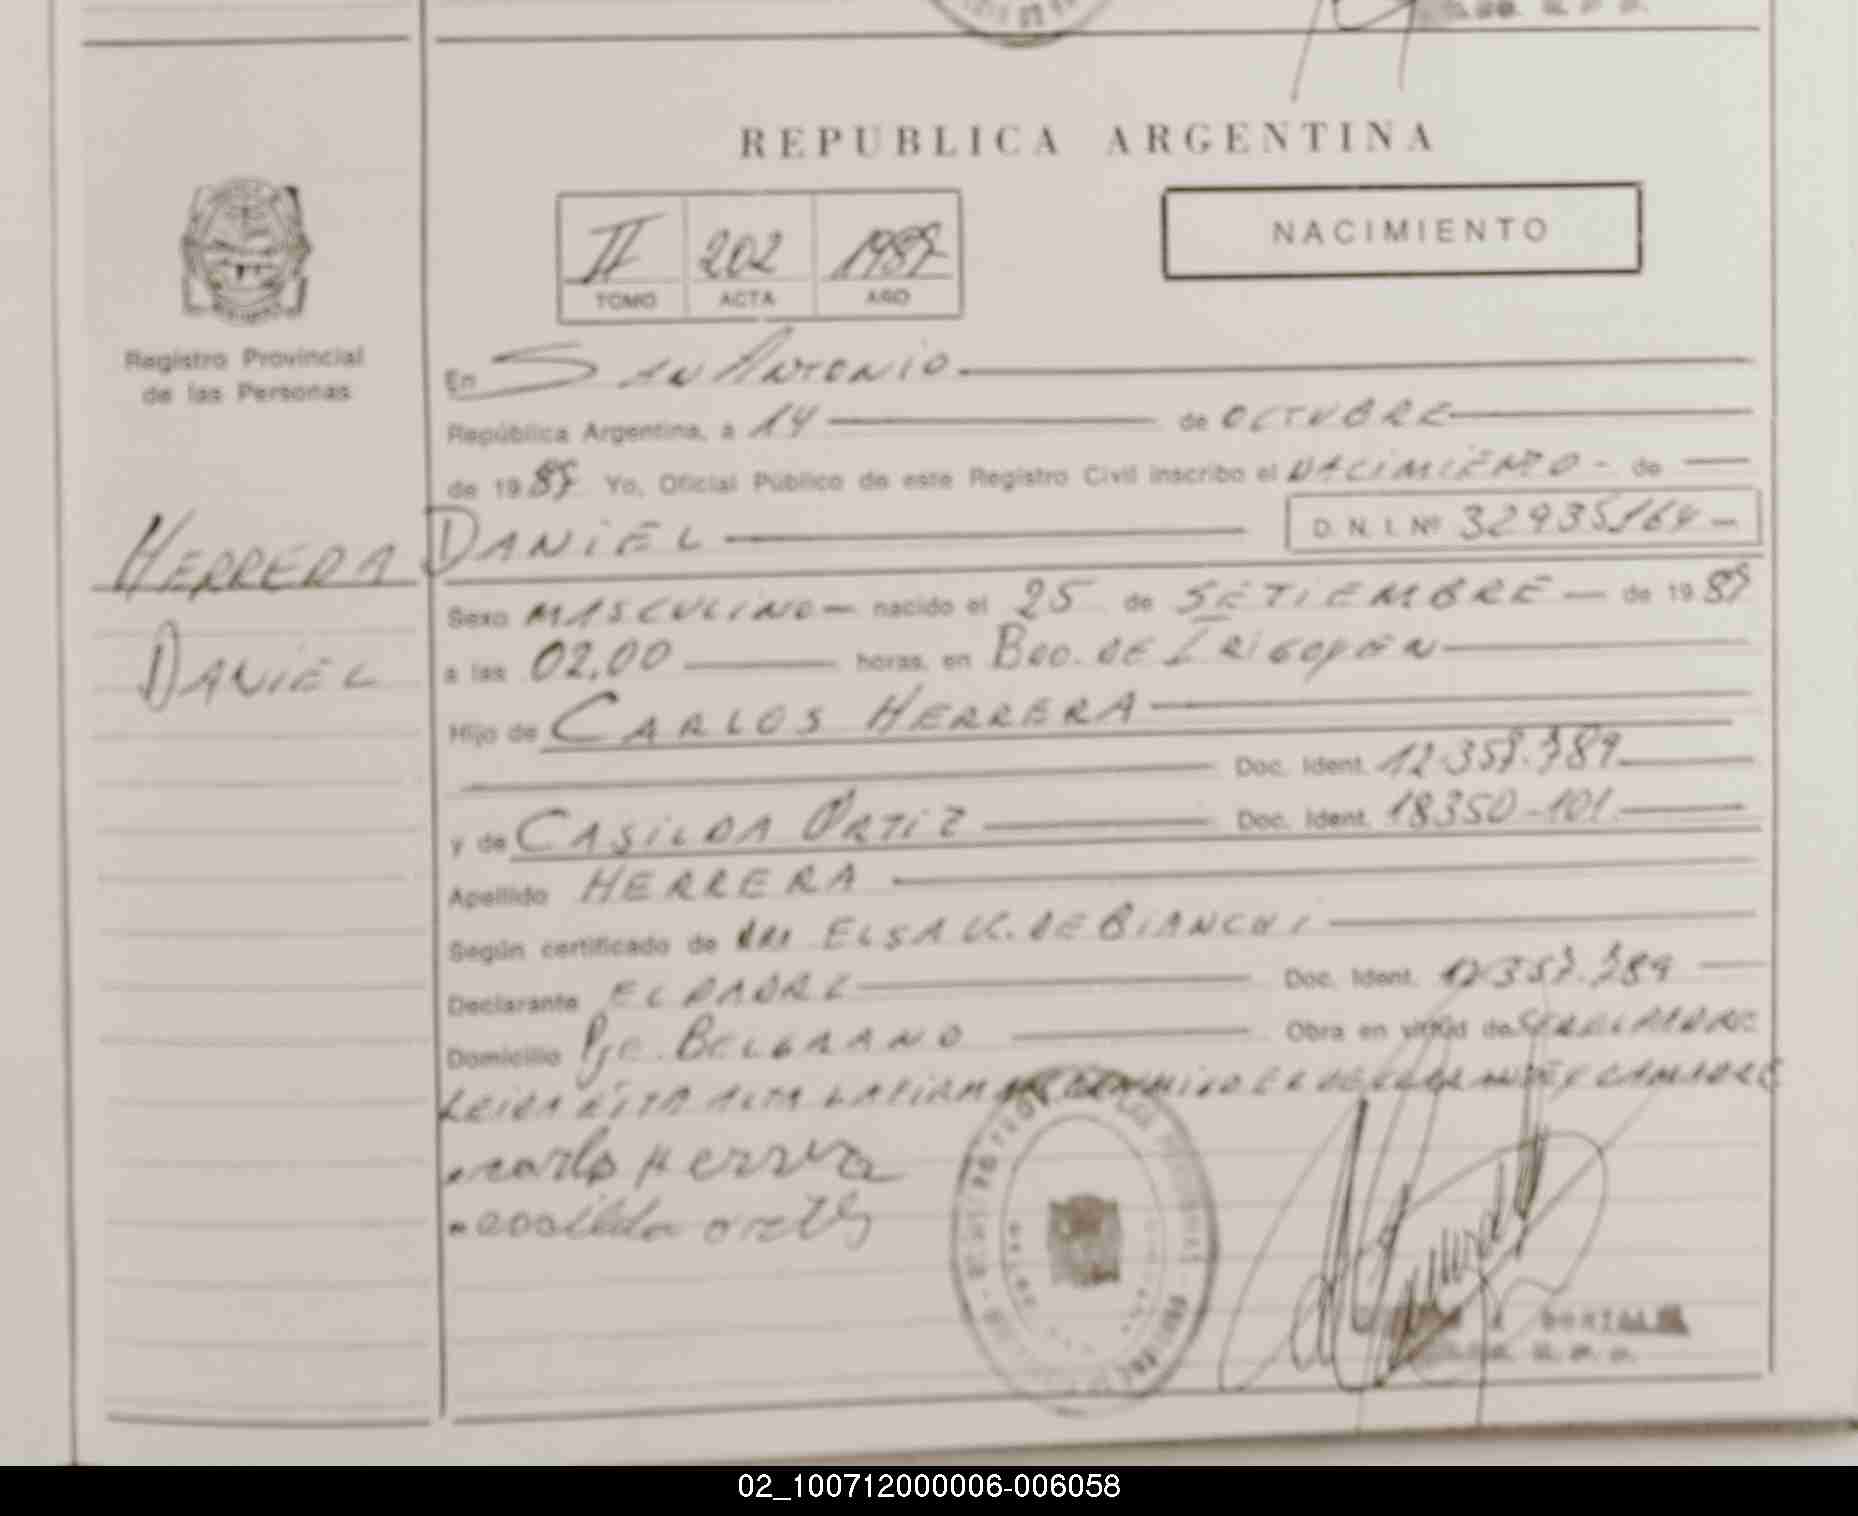 REPUBLICA ARGENTINA
NACIMIENTO
II 202 1987
TOMO ACTA AÑO
Registro Provincial
de las Personas
En SAN ANTONIO
República Argentina, a 14 de OCTUBRE
de 1987 Yo, Oficial Público de este Registro Civil inscribo el NACIMIENTO - de
DANIEL D. N. I. Nº 32935164 -
HERRERA
DANIEL
Sexo MASCULINO - nacido el 25 de SETIEMBRE - de 1987
a las 02,00 horas, en Bdo. DE IRIGOYEN
Hijo de CARLOS HERRERA
Doc. Ident. 12.357.789
y de CASILDA ORTIZ Doc. Ident. 18350-101
Apellido HERRERA
Según certificado de ELSA K. DE BIANCHI
Declarante EL PADRE Doc. Ident. 12.357.789
Domicilio Pje. BELGRANO Obra en virtud de SER EL PADRE
LEIDA ESTA ACTA LA FIRMAN CONMIGO EL DECLARANTE Y LA MADRE
carlos Herrera
casilda ortiz
02_100712000006-006058